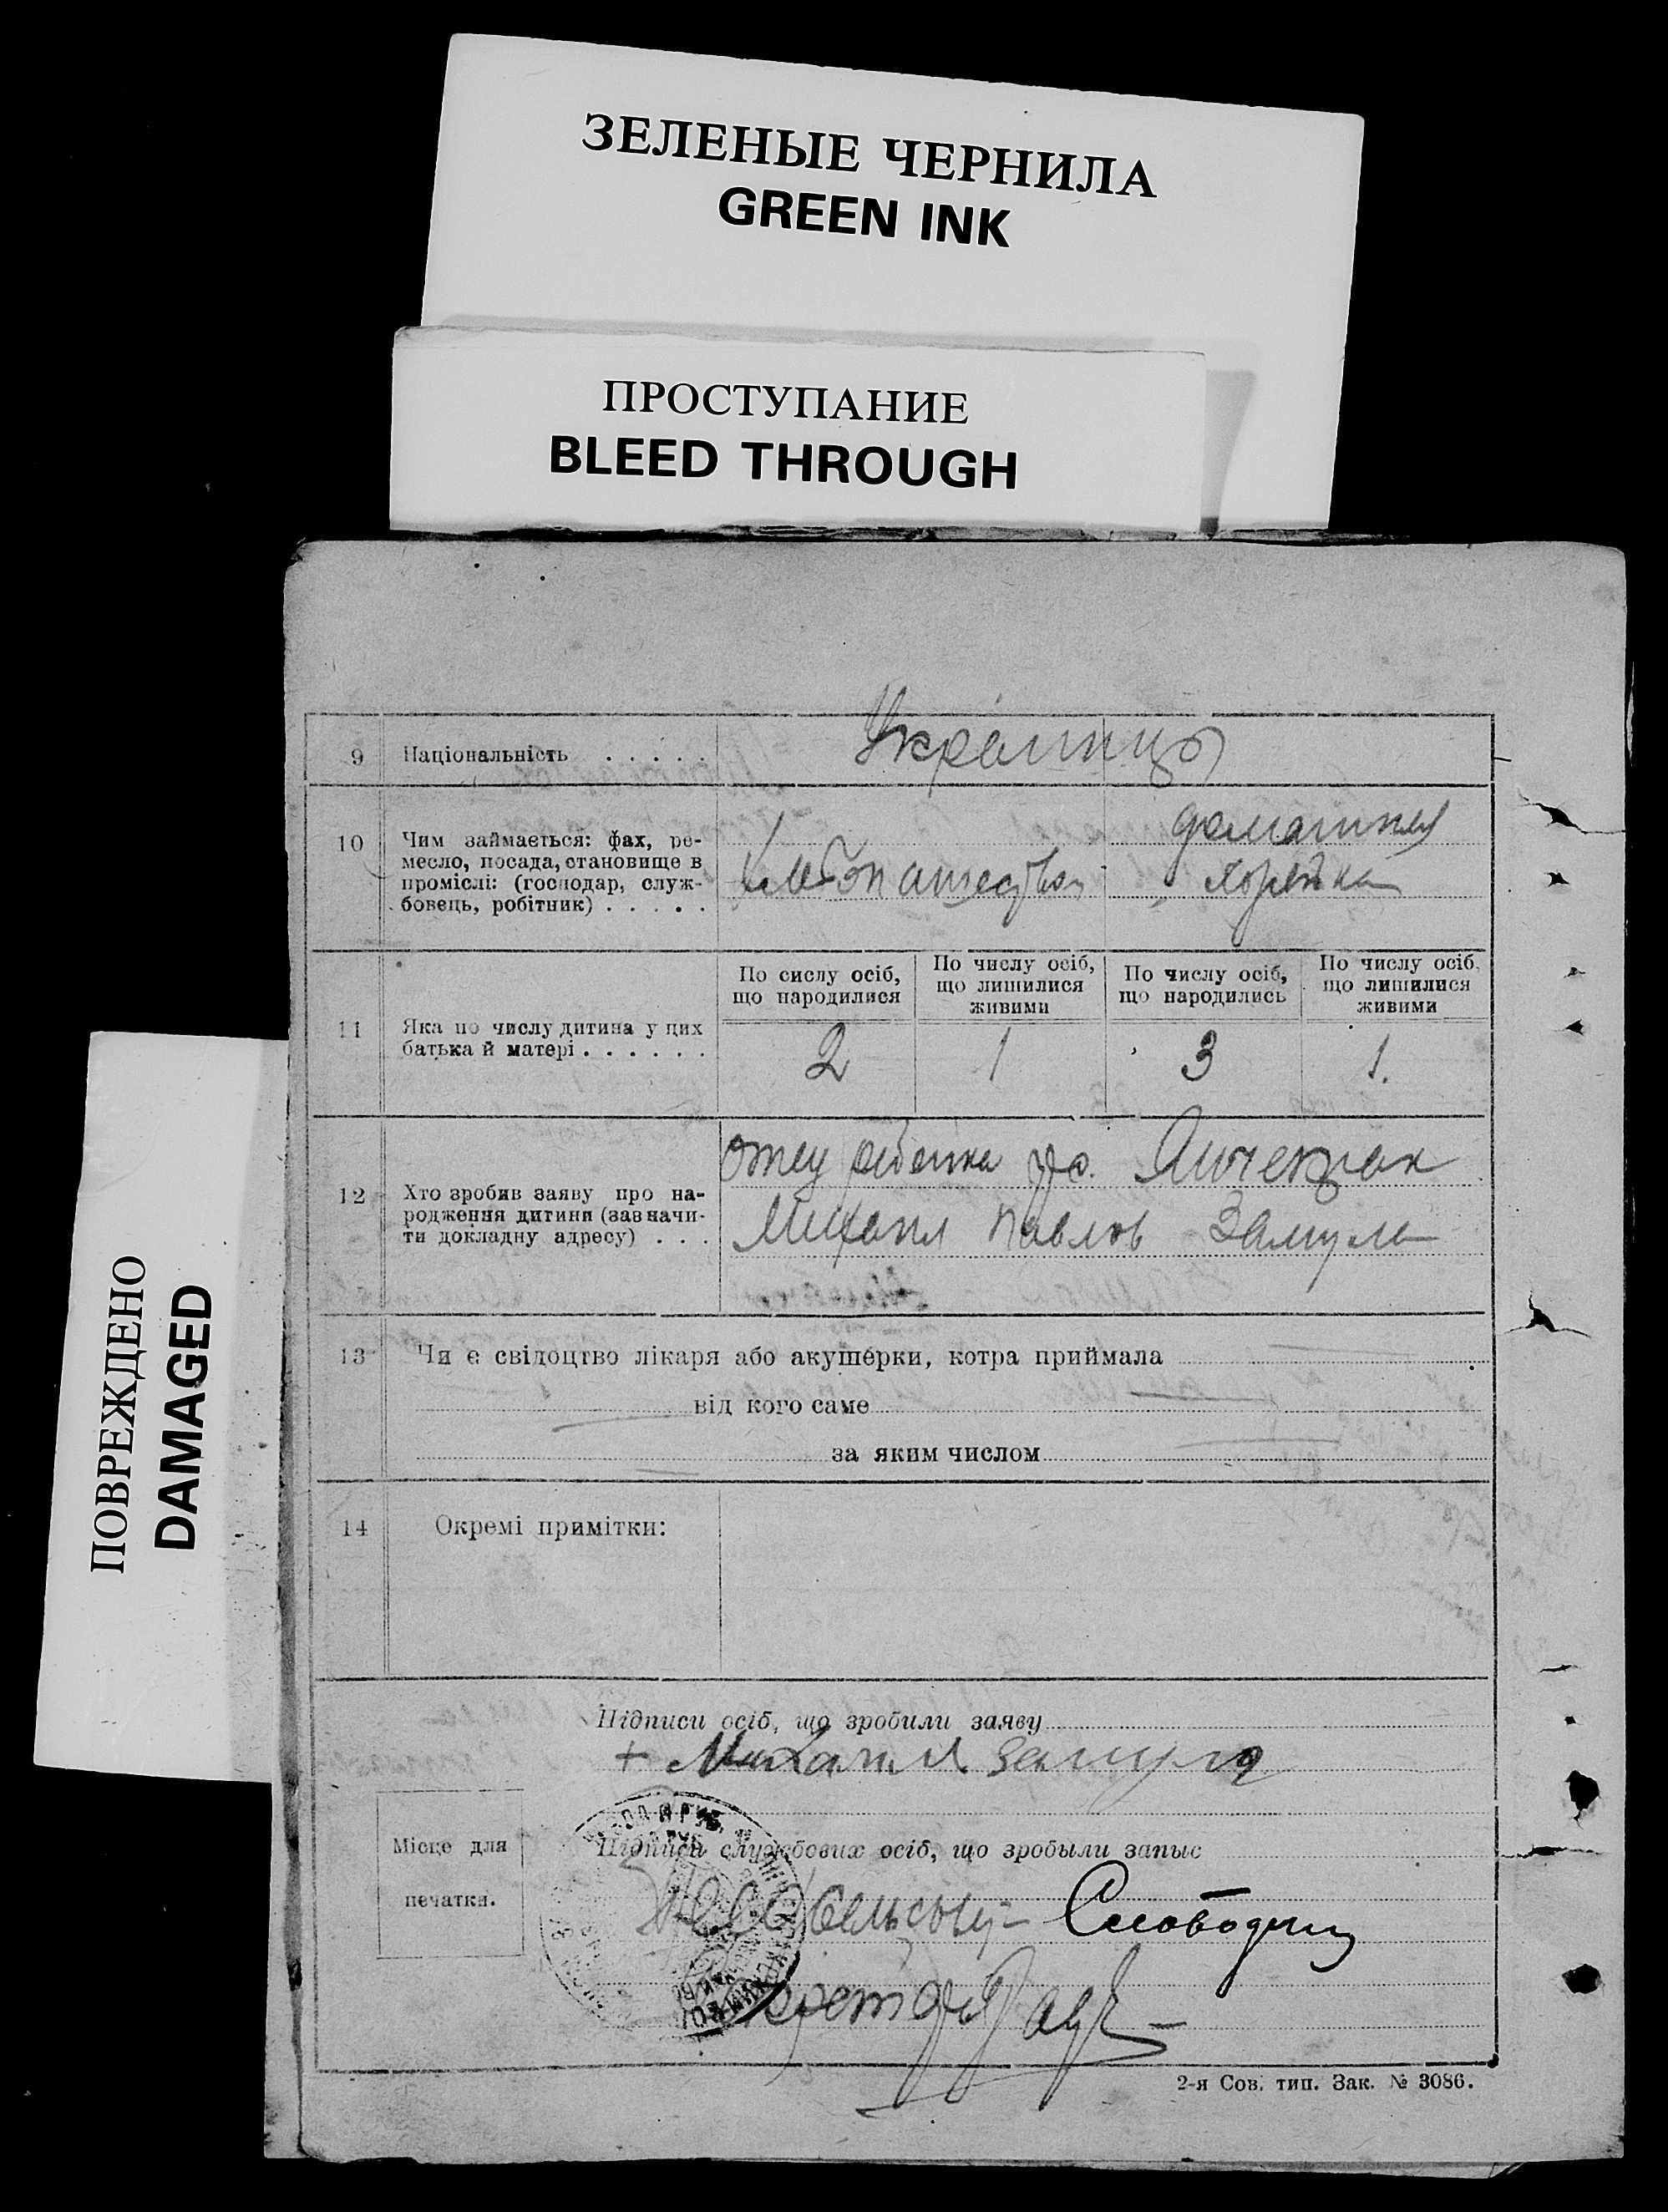 ЗЕЛЕНЫЕ ЧЕРНИЛА
GREEN INK
ПРОСТУПАНИЕ
BLEED THROUGH
ПОВРЕЖДЕНО
DAMAGED
9 Національність . . . . . Украинцы
10 Чим займається: фах, ре-
месло, посада, становище в
проміслі: (господар, служ-
бовець, робітник) . . . . .
хлебопашество
домашняя
11 Яка по числу дитина у цих
батька й матері . . . . . .
По сислу осіб,
що народилися
По числу осіб,
що лишилися
живими
По числу осіб,
що народились
По числу осіб,
що лишилися
живими
2 1 3 1.
12 Хто зробив заяву про на-
родження дитини (зазначи-
ти докладну адресу) . . .
отец ребенка
Михаил Павлов Замула
13 Чи є свідоцтво лікаря або акушерки, котра приймала
від кого саме
за яким числом
14 Окремі примітки:
Підписи осіб, що зробили заяву
+ Михаил Замула
Місце для
печатки.
Підписи службових осіб, що зробыли запыс
Секретарь
2-я Сов. тип. Зак. № 3086.